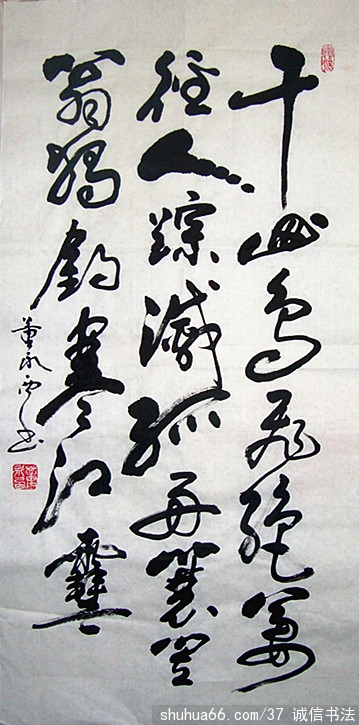 千山鸟飞绝萬
径人踪滅孤舟蓑笠
翁獨钓寒江雪
董永 书
shuhua66.com/37 诚信书法